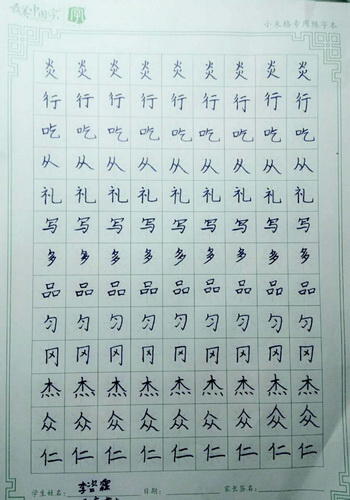 最美中国字
小米格专用练字本
炎炎炎炎炎炎炎炎炎
行行行行行行行行行
吃吃吃吃吃吃吃吃吃
从从从从从从从从从
礼礼礼礼礼礼礼礼礼
写写写写写写写写写
多多多多多多多多多
品品品品品品品品品
匀匀匀匀匀匀匀匀匀
冈冈冈冈冈冈冈冈冈
杰杰杰杰杰杰杰杰杰
众众众众众众众众众
仁仁仁仁仁仁仁仁仁
学生姓名: 日期: 家长签名: